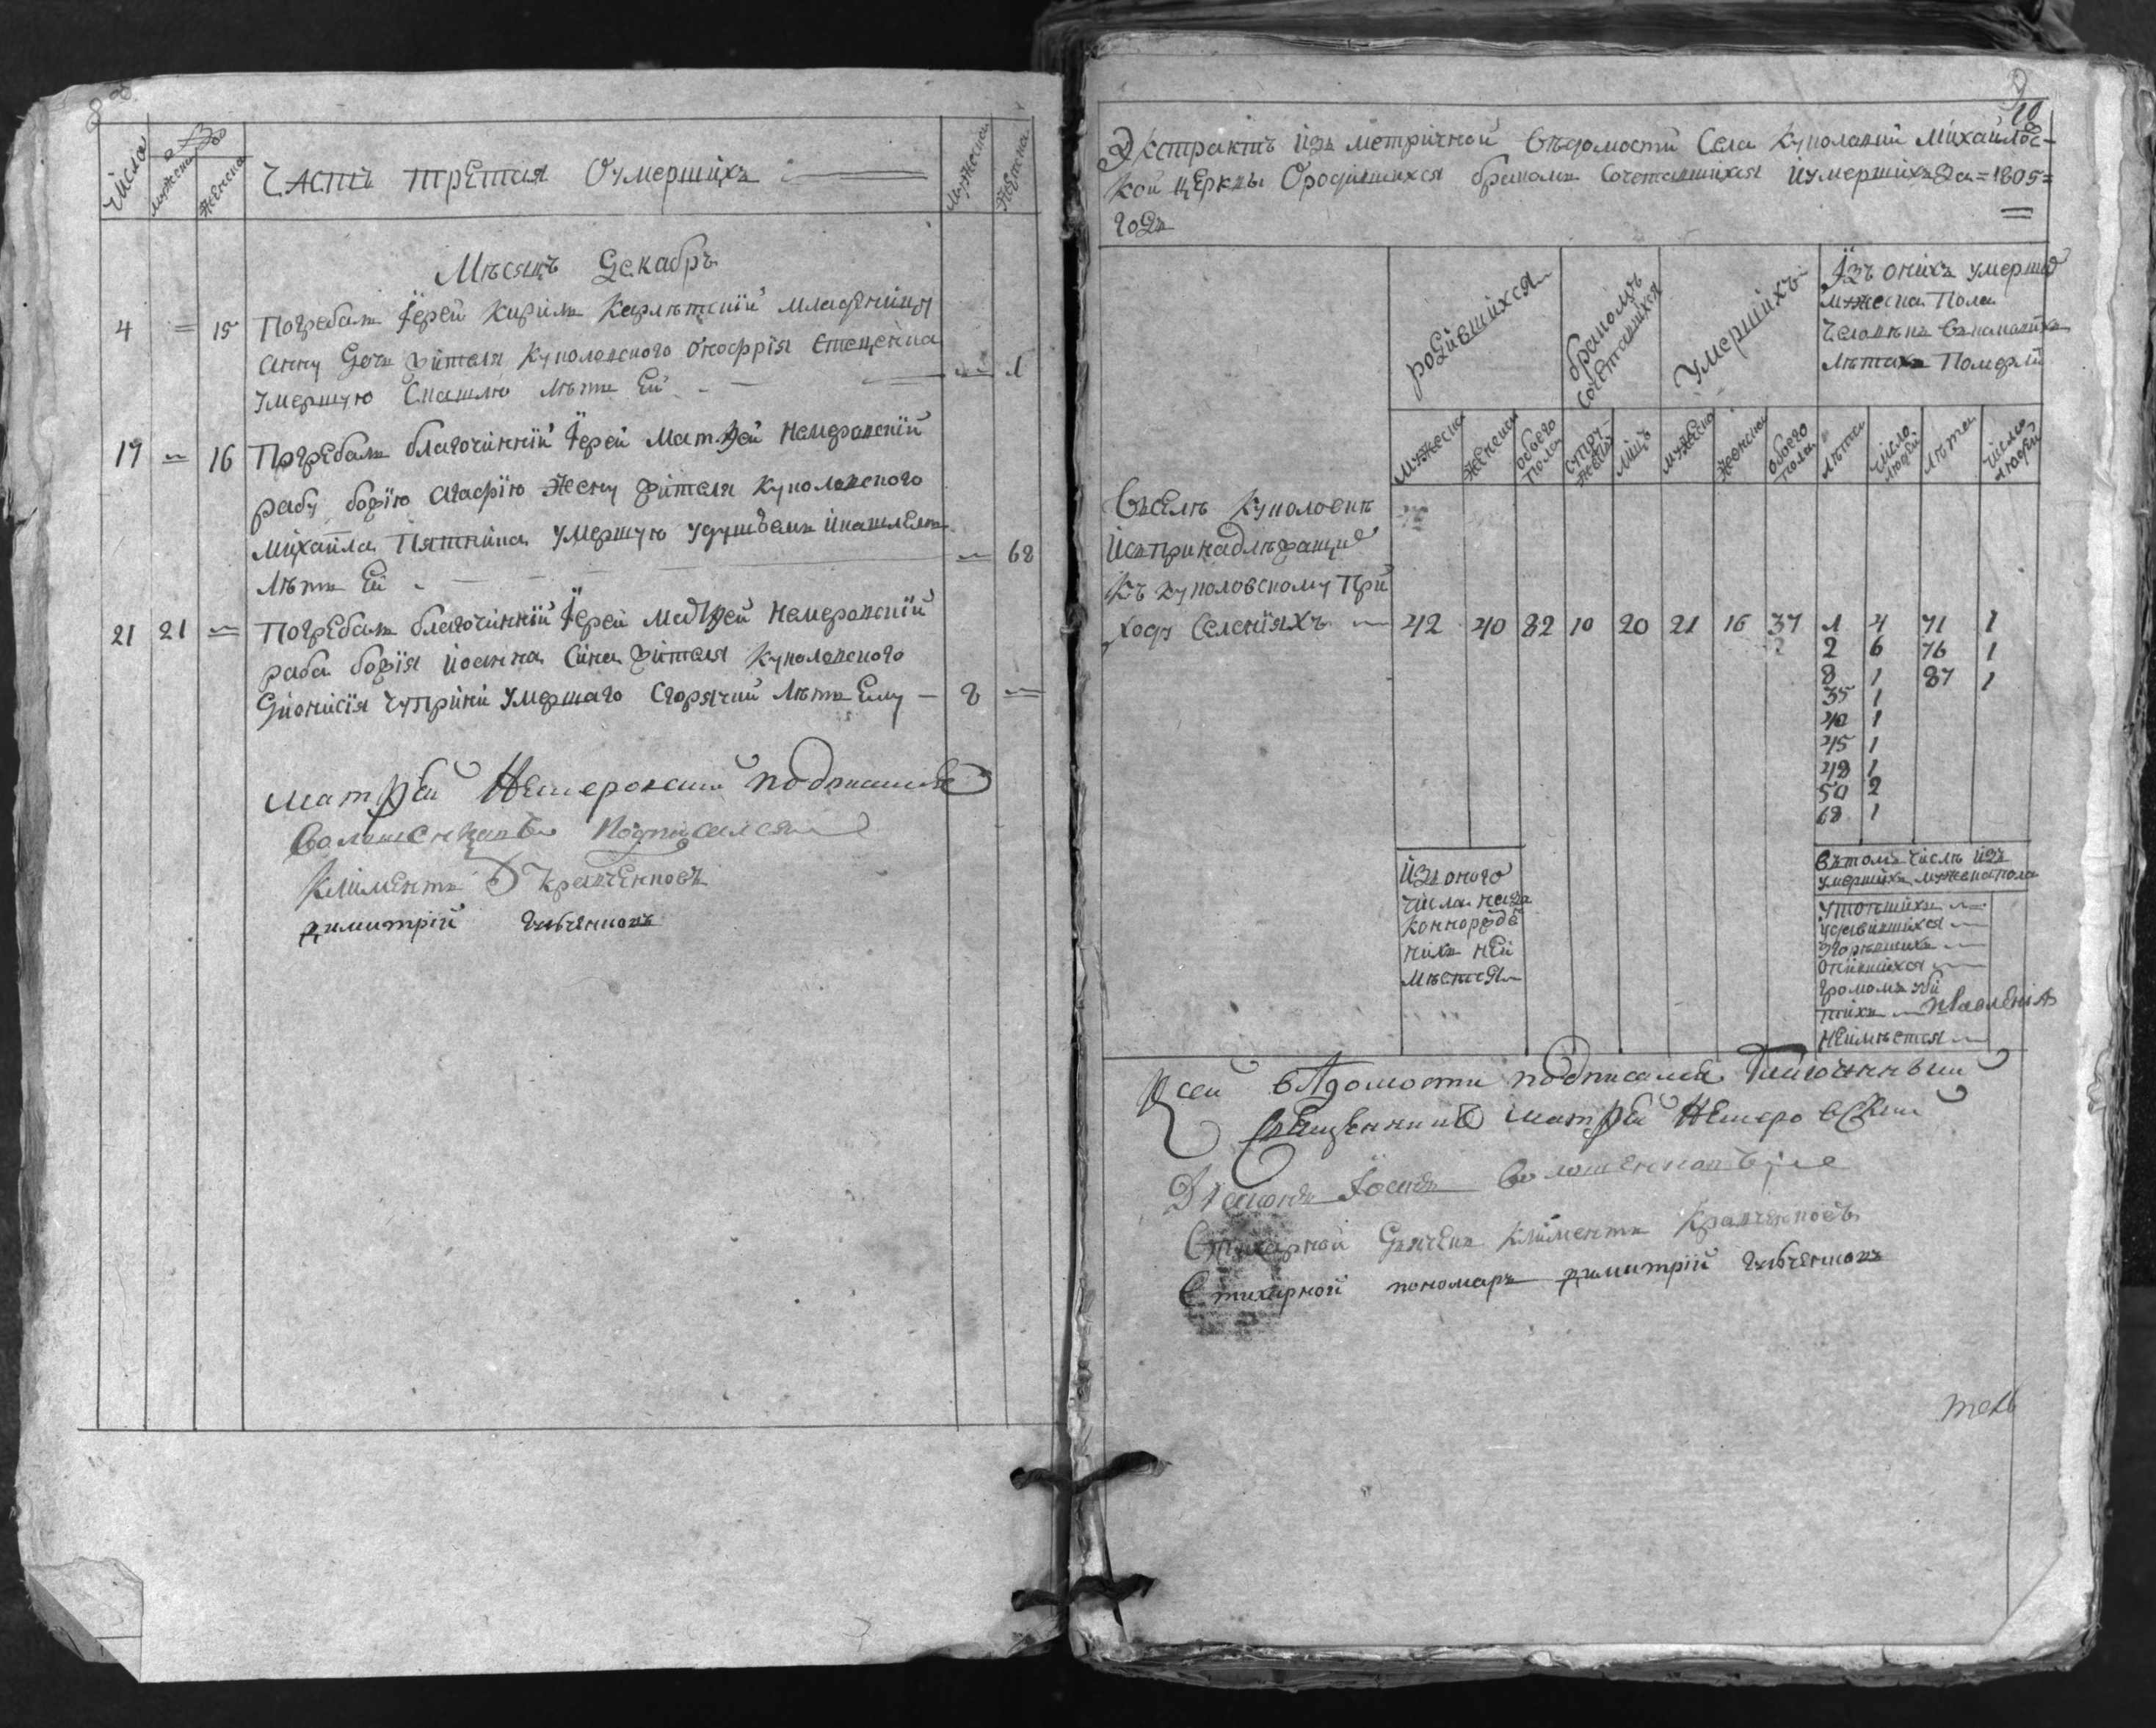 Число
мужеска
женска
Часть третая О умершихъ
мужеска
женска
Мѣсяцъ Декабръ
4 = 15 Погребалъ Іерей Кирилъ младеницу
Анну дочь жителя Куполовского Онофрія Стеценка
умершую Скашлю лѣтъ Ей - — 1
19 = 16 Погребалъ благочинній Іерей Матѳей Немеровскій
рабу божію Агафію Жену жителя Куполовского
Михаила Пятнина умершую удушъемъ икашлемъ
лѣтъ Ей - — 68
21 21 = Погребалъ благочинній Іерей Матѳей Немеровскій
раба божія Иоанна Сина жителя Куполовского
Дионисія Чуприни умершаго Сгорячки лѣтъ Ему — 8 =
Матѳей Немеровский подписался
Подписался
Климентъ Кравченковъ
Димитрій
10
Экстрактъ изъ метричной вѣдомости Села Куполовки Михайловс-
кой церкви Ородившихся бракомъ Сочетавшихся иумершихъ За = 1805 =
годъ
родившихся
бракомъ
сочетавшихся
умершихъ
Изъ онихъ умерше
мужеска Пола
человѣкъ вкакихъ
лѣтахъ Померли
мужеска
женска
обоего
пола
лицъ
мужеско
женско
обоего
пола
лѣта
число
людей
лѣта
число
людей
Въ Селѣ Куполовкѣ
Ивъ принадлѣжащие
Къ Куполовскому При
ходу Селеніяхъ — 42 40 82 10 20 21 16 37 1 4 71 1
2 6 76 1
8 1 87 1
35 1
40 1
45 1
48 1
50 2
68 1
Изъ оного
числа неза
коннорожде
нихъ неи
мѣется
Вътомъ числѣ изъ
умершихъ мужескапола
утопшихъ —
удавившихся —
згорѣвшихъ —
опившихся —
громомъ уби
тихъ —
неимѣется —
К сей вѣдомости подписался Благочинный
Священникъ Матѳей Немеровский
Діаконъ Іоанъ
Стихарной Дячекъ Климентъ Кравченковъ
Стихарной пономарь Димитрій